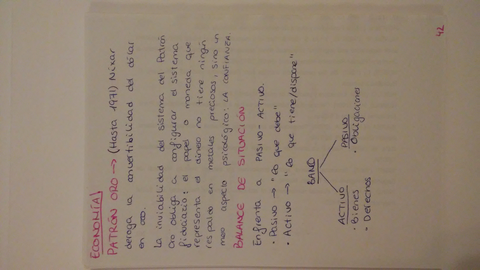 ECONOMÍA
PATRÓN ORO → (Hasta 1971) Nixar
deroga la convertibilidad del dólar
en oro.
La inviabilidad del sistema del Patrón
Oro obligó a configurar el sistema
fiduciario: el papel o moneda que
representa el dinero no tiene ningún
respaldo en metales preciosos, sino un
mero aspecto psicológico: LA CONFIANZA.
BALANCE DE SITUACIÓN
Enfrenta a PASIVO - ACTIVO.
• Pasivo → "lo que debe"
• Activo → "lo que tiene/dispone"
ACTIVO
• Bienes
• Derechos
PASIVO
• Obligaciones
42